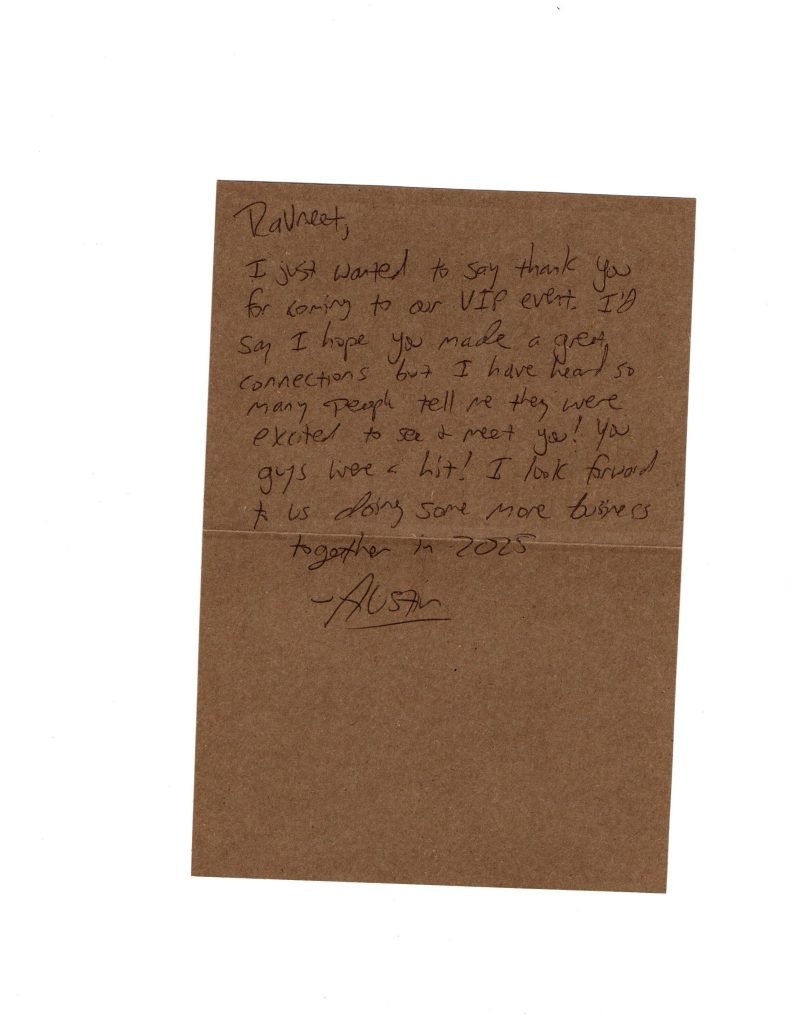 Ravneet,
I just wanted to say thank you
for coming to our VIP event. I'd
say I hope you made a great
connections but I have heard so
many people tell me they were
excited to see & meet you! You
guys were a hit! I look forward
to us doing some more business
together in 2025
-Austin